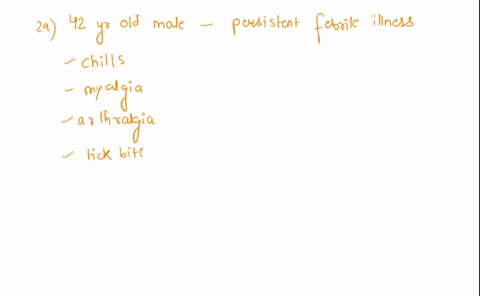 2a) 42 yr old male – persistent febrile illness
- chills
- myalgia
- arthralgia
- tick bite